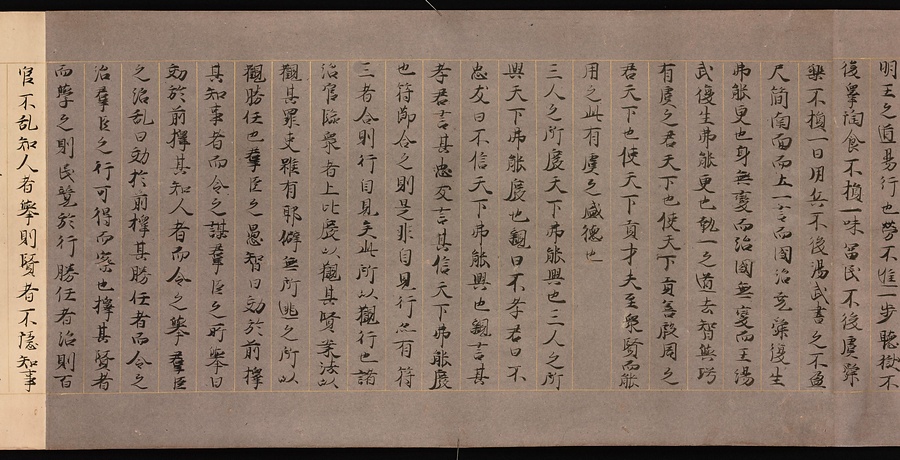 明王之道易行也勞不進一步聽獄不
後皋陶食不損一味富民不後虞舜
樂不損一日用兵不後湯武書之不盈
尺簡南面而立一言而國治堯舜復生
弗能更也身無變而治國無變而王湯
武復生弗能更也執一之道去智與巧
有虞之君天下也使天下貢善殷周之
君天下也使天下貢才夫至衆賢而能
用之此有虞之盛德也
三人之所廢天下弗能興也三人之所
興天下弗能廢也親曰不孝君曰不
忠友曰不信天下弗能興也親言其
孝君言其忠友言其信天下弗能廢
也符節合之則是非自見行亦有符
三者合則行自見矣此所以觀行也諸
治官臨衆者上比度以觀其賢案法以
觀其罪吏雖有邪僻無所逃之所以
觀勝任也羣臣之愚智日効於前擇
其知事者而令之謀羣臣之所舉日
効於前擇其知人者而令之舉羣臣
之治乱日効於前擇其勝任者而令之
治羣臣之行可得而察也擇其賢者
而舉之則民競於行勝任者治則百
官不乱知人者舉則賢者不隱知事